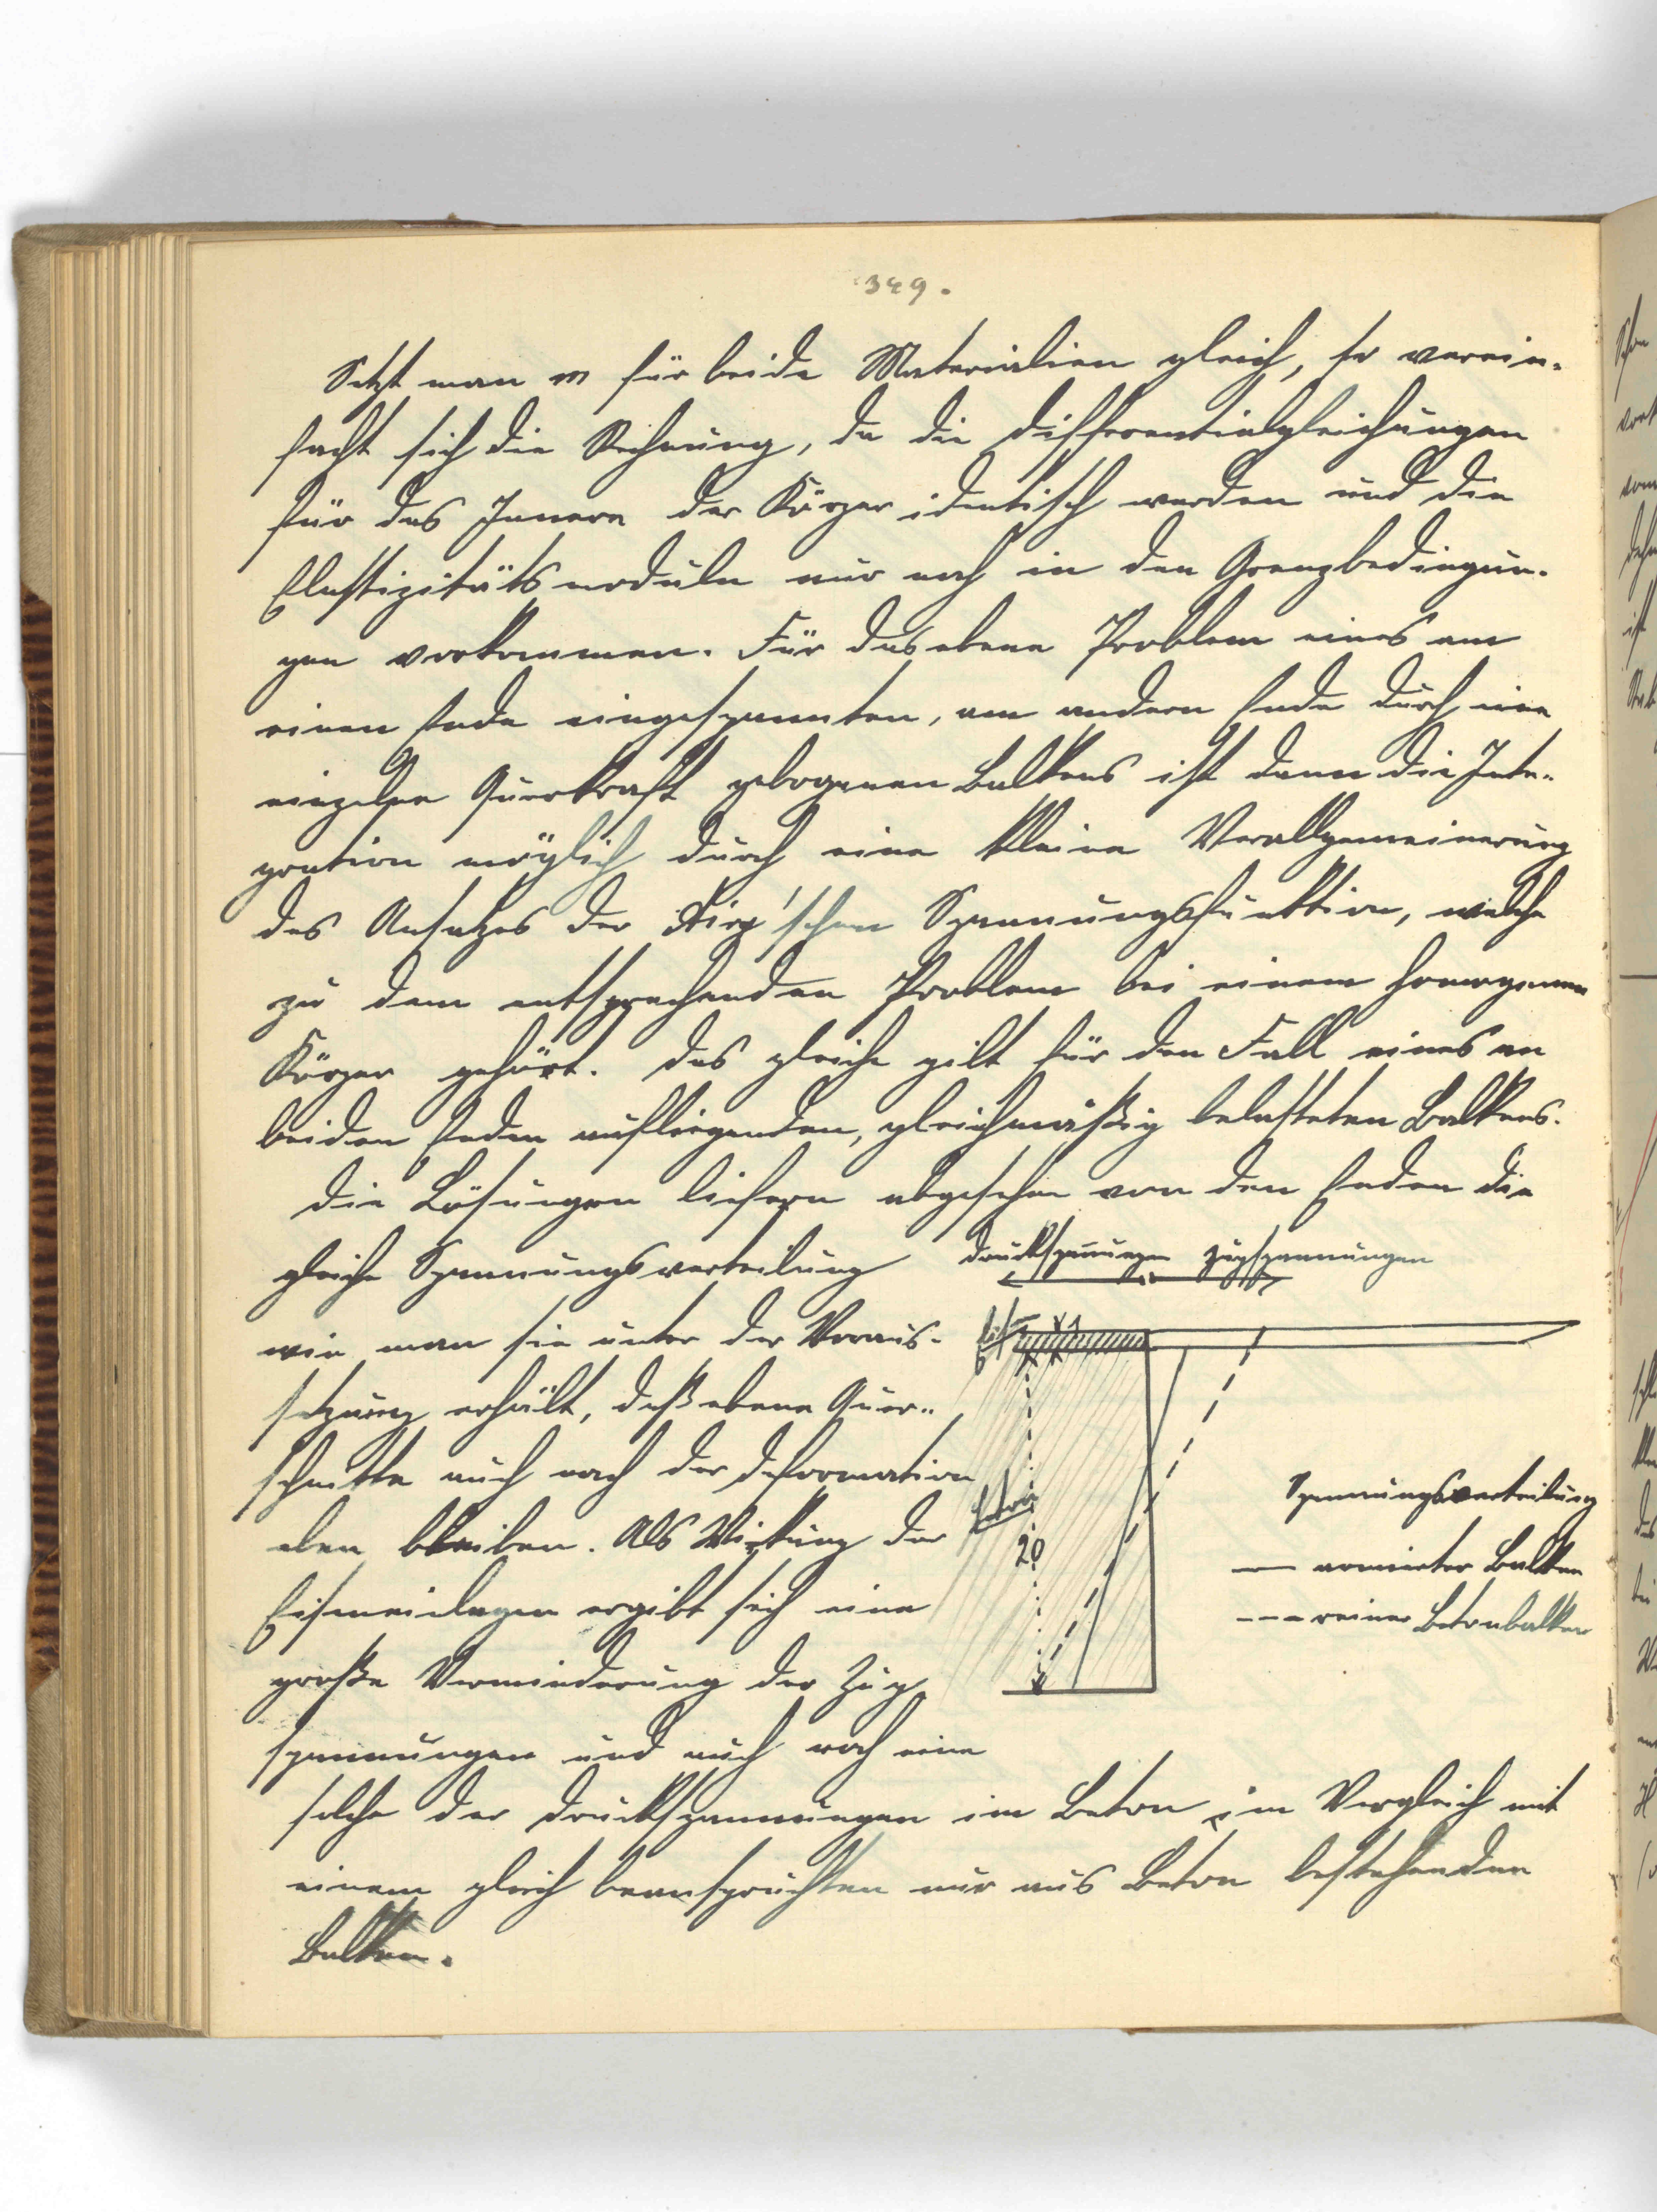 349.
Setzt man m für beide Materialien gleich, so verein-
facht sich die Rechnung, da die Differentialgleichungen
für das Innere der Körper identisch werden und die
Elastizitätsmoduln nur noch in den Grenzbedingun-
gen vorkommen. Für das ebene Problem eines am
einen Ende eingespannten, am andern Ende durch eine
einzelne Querkraft gebogenen Balkens ist dann die Inte-
gration möglich durch eine kleine Verallgemeinerung
des Ansatzes der Airy'schen Spannungsfunktion, welche
zu dem entsprechenden Problem bei einem homogenen
Körper gehört. Das gleiche gilt für den Fall eines an
beiden Enden aufliegenden, gleichmäßig belasteten Balkens.
Die Lösungen liefern abgesehen von den Enden die
gleiche Spannungsverteilung
wie man sie unter der Voraus-
setzung erhält, daß ebene Quer-
schnitte auch nach der Deformation
eben bleiben. Als Wirkung der
Eiseneinlagen ergibt sich eine
große Verminderung der Zug-
spannungen und auch noch eine
solche der Druckspannungen im Beton im Vergleich mit
einem gleich beanspruchten nur aus Beton bestehenden
Balken.
Druckspannungen Zugspannungen
Eisen
1
Beton
20
Spannungsverteilung
— armierter Balken
--- reiner Betonbalken